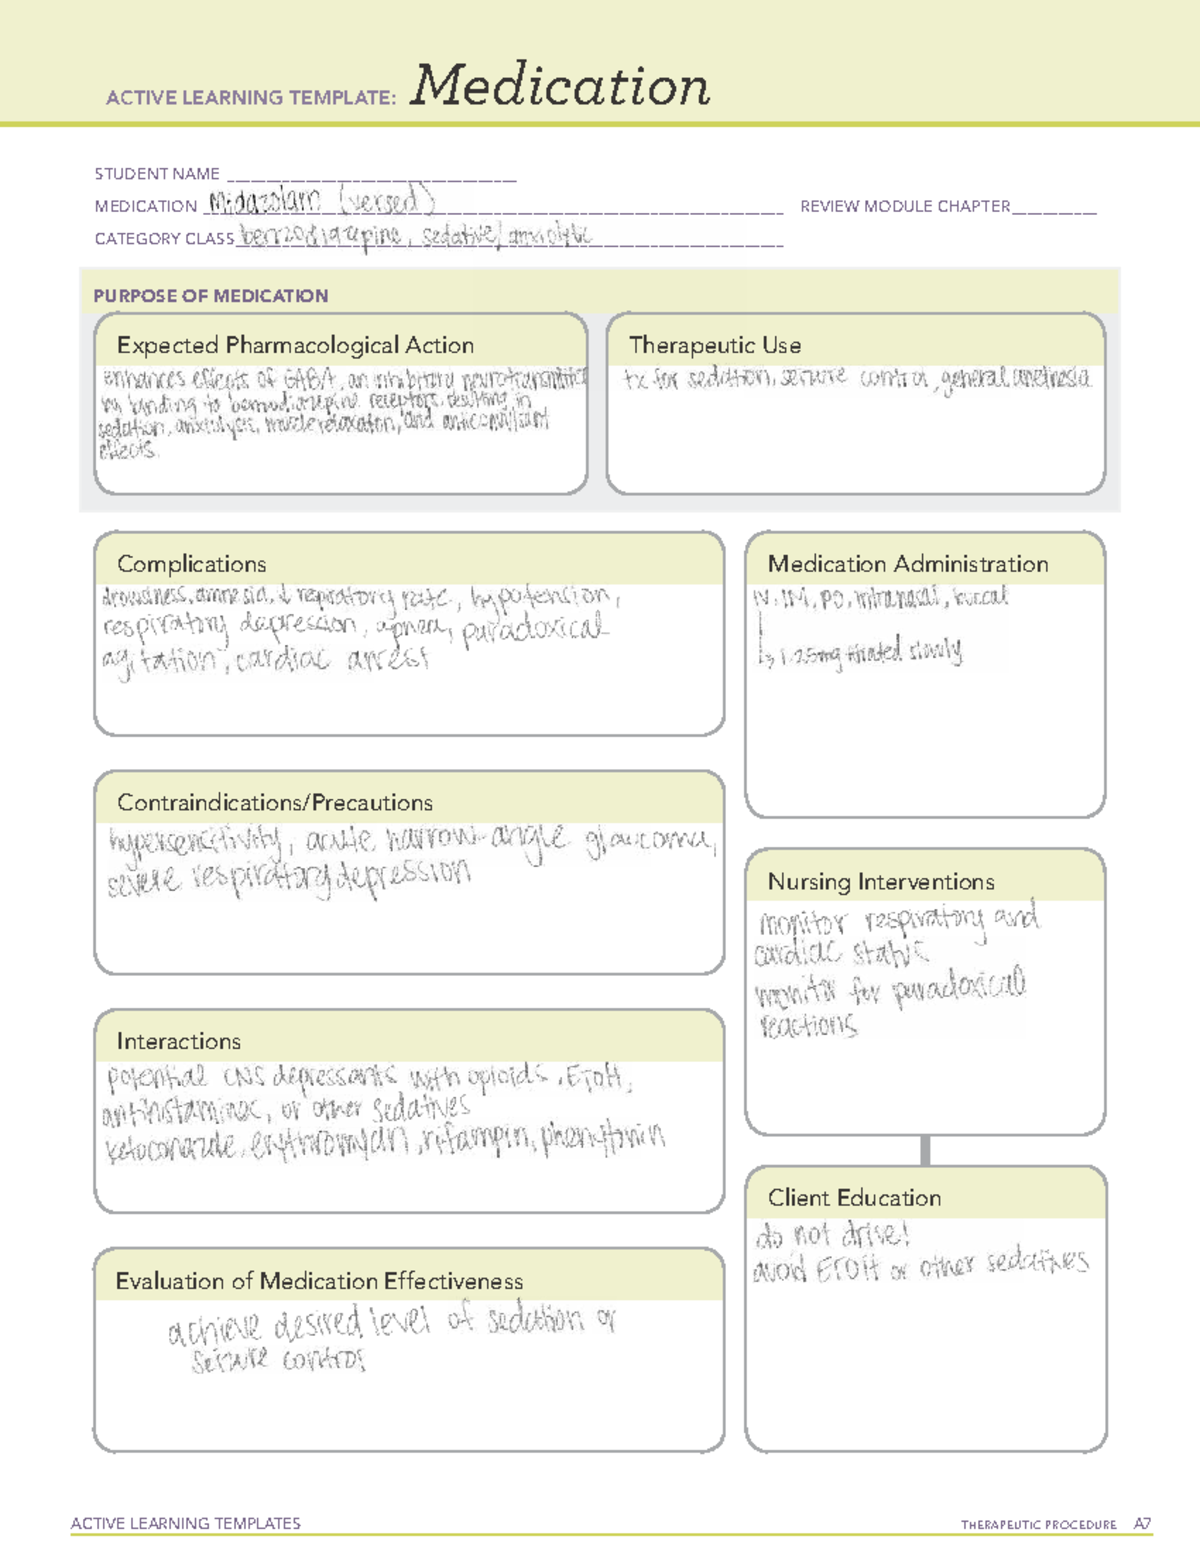 ACTIVE LEARNING TEMPLATE: Medication
STUDENT NAME
MEDICATION Midazolam (versed)
REVIEW MODULE CHAPTER
CATEGORY CLASS benzodiazepine, sedative/anxiolytic
PURPOSE OF MEDICATION
Expected Pharmacological Action
Enhances effects of GABA, an inhibitory neurotransmitter
by binding to benzodiazepine receptors, resulting in
sedation, anxiolysis, muscle relaxation, and anticonvulsant
effects.
Therapeutic Use
tx for sedation, seizure control, general anesthesia
Complications
drowsiness, amnesia, ↓ respiratory rate, hypotension,
respiratory depression, apnea, paradoxical
agitation, cardiac arrest
Medication Administration
IV, IM, PO, intranasal, buccal
↳ 1-2.5mg titrated slowly
Contraindications/Precautions
hypersensitivity, acute narrow-angle glaucoma,
severe respiratory depression
Nursing Interventions
monitor respiratory and
cardiac status
monitor for paradoxical
reactions
Interactions
potential CNS depressants with opioids, ETOH,
antihistamines, or other sedatives
ketoconazole, erythromycin, rifampin, phenytonin
Client Education
do not drive!
avoid ETOH or other sedatives
Evaluation of Medication Effectiveness
achieve desired level of sedation or
seizure control
ACTIVE LEARNING TEMPLATES
THERAPEUTIC PROCEDURE A7